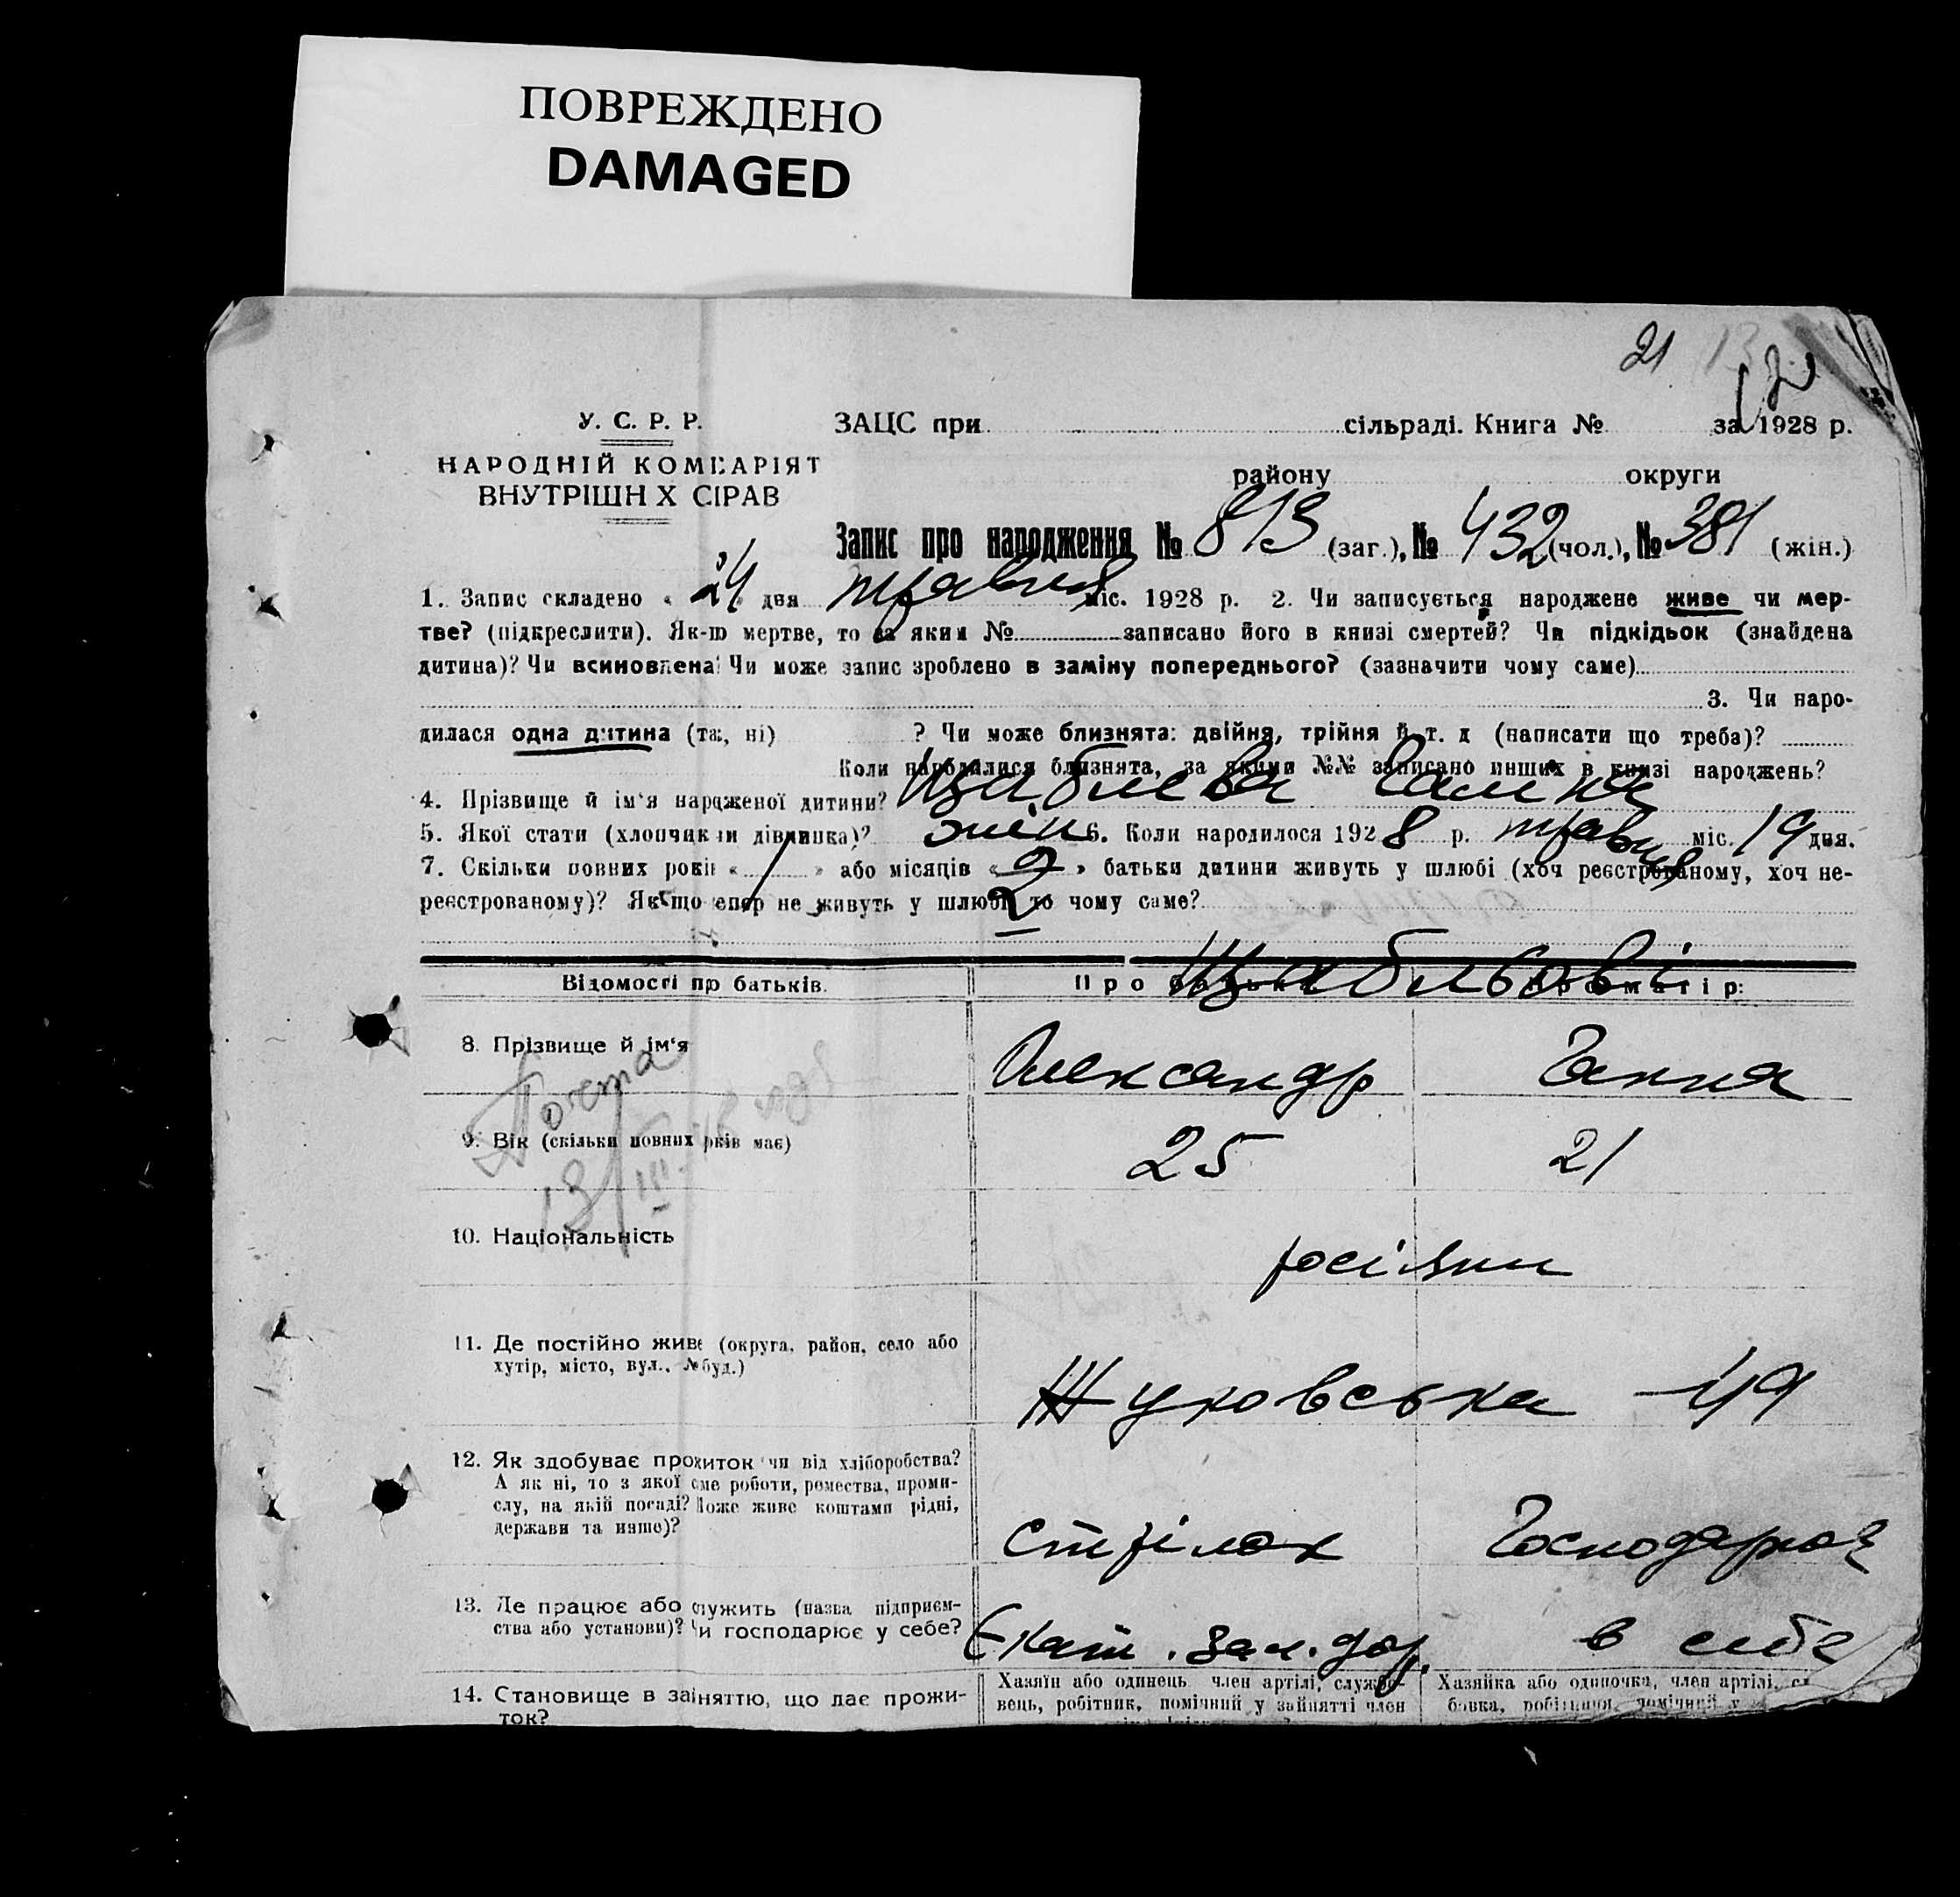 ПОВРЕЖДЕНО
DAMAGED
21 13
12
У. С. Р. Р.
НАРОДНІЙ КОМІСАРІЯТ
ВНУТРІШН Х СПРАВ
ЗАЦС при сільраді. Книга № за 1928 р.
району округи
Запис про народження № 813 (заг.), № 432 (чол.), № 381 (жін.)
1. Запис складено « 24 » дня травня міс. 1928 р. 2. Чи записується народжене живе чи мер-
тве? (підкреслити). Як-що мертве, то за яким № записано його в книзі смертей? Чи підкідьок (знайдена
дитина)? Чи всиновлена? Чи може запис зроблено в заміну попереднього? (зазначити чому саме)
3. Чи наро-
дилася одна дитина (так, ні) ? Чи може близнята: двійня, трійня й т. д (написати що треба)?
Коли народилися близнята, за якими №№ записано инших в книзі народжень?
4. Прізвище й ім'я народженої дитини? Галина
5. Якої стати (хлопчик чи дівчинка)? жін 6. Коли народилося 1928 р. травня міс. 19 дня.
7. Скільки повних років « / » або місяців « 2 » батьки дитини живуть у шлюбі (хоч реєстрованому, хоч не-
2
реєстрованому)? Якщо тепер не живуть у шлюбі, то чому саме?
Відомості про батьків. Про батька: Про матір:
8. Прізвище й ім'я Олександр Ганна
9. Вік (скільки повних років має) 25 21
13/III
10. Національність росіяни
11. Де постійно живе (округа, район, село або
хутір, місто, вул., № буд.)
Жуковська 49
12. Як здобуває прожиток чи від хліборобства?
А як ні, то з якої саме роботи, ремества, проми-
слу, на якій посаді? Може живе коштами рідні,
держави та инше)?
Стрілок Господарка
13. Де працює або служить (назва підприєм-
ства або установи)? Чи господарює у себе?
Єкат. зал. дор. в себе
14. Становище в заняттю, що дає прожи-
ток?
Хазяїн або одинець член артілі, службо-
вець, робітник, помічний у зайнятті член
Хазяйка або одиночка, член артілі,
бовка, робітниця, помічний у